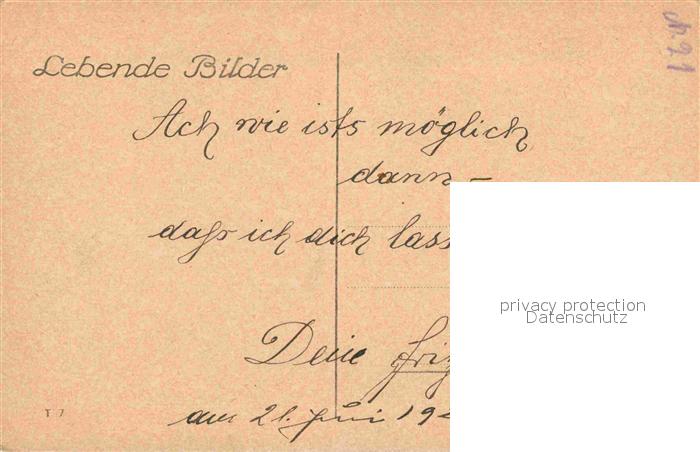 Lebende Bilder
Ach wie ists möglich
dann –
daß ich dich lass
Deine
am 21. Juni 19
T 7
privacy protection
Datenschutz